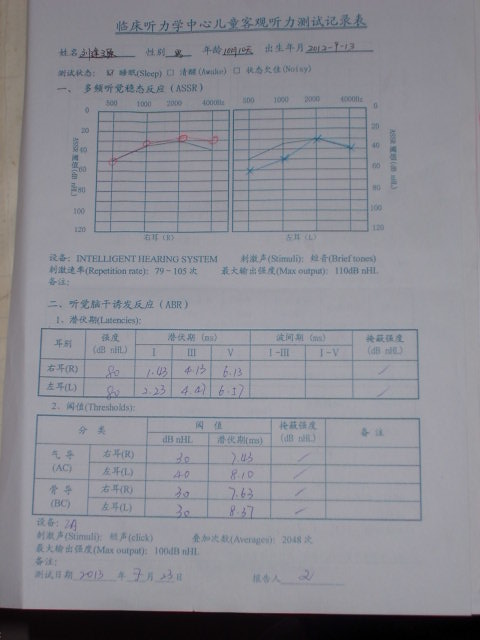 临床听力学中心儿童客观听力测试记录表
姓名 性别 男 年龄 10月10天 出生年月 2012-9-13
测试状态： 睡眠(Sleep) □ 清醒(Awake) □ 状态欠佳(Noisy)
一、 多频听觉稳态反应（ASSR）
500 1000 2000 4000Hz 500 1000 2000 4000Hz
0 0
20 20
40 40
60 60
80 80
100 100
120 120
ASSR 阈值(dB nHL) ASSR 阈值(dB nHL)
右耳(R) 左耳(L)
设备：INTELLIGENT HEARING SYSTEM 刺激声(Stimuli)：短音(Brief tones)
刺激速率(Repetition rate)：79－105 次 最大输出强度(Max output)：110dB nHL
备注：
二、听觉脑干诱发反应（ABR）
1、潜伏期(Latencies):
耳别 强度 (dB nHL) 潜伏期 (ms) 波间期 (ms) 掩蔽强度 (dB nHL)
I III V I-III I-V
右耳(R) 80 1.43 4.13 6.13 /
左耳(L) 80 2.23 4.47 6.57 /
2、阈值(Thresholds):
分 类 阈 值 掩蔽强度 (dB nHL) 备 注
dB nHL 潜伏期(ms)
气 导 (AC) 右耳(R) 30 7.43 /
左耳(L) 40 8.10 /
骨 导 (BC) 右耳(R) 30 7.63 /
左耳(L) 30 8.37 /
设备：
刺激声(Stimuli)：短声(click) 叠加次数(Averages)：2048 次
最大输出强度(Max output)：100dB nHL
备注：
测试日期 2013 年 7 月 23 日 报告人